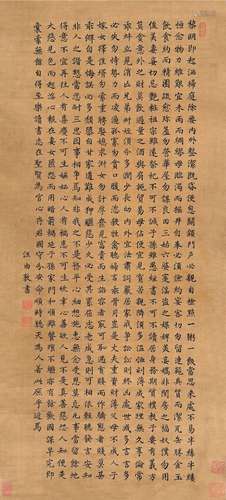 黎明即起洒掃庭除要內外整潔既昏便息關鎖門戶必親自檢點一粥一飯當思來處不易半絲半縷
恒念物力維艱宜未雨而綢繆毋臨渴而掘井自奉必須儉約宴客切勿留連器具質而潔瓦缶勝金玉
飲食約而精園蔬愈珍饈勿營華屋勿謀良田三姑六婆實淫盜之媒婢美妾嬌非閨房之福奴僕勿用
俊美妻妾切忌艷粧祖宗雖遠祭祀不可不誠子孫雖愚經書不可不讀居身務期質樸教子要有義方
莫貪意外之財莫飲過量之酒與肩挑貿易毋佔便宜見貧苦親鄰須多溫恤刻薄成家理無久享倫常
乖舛立見消亡兄弟叔姪須分多潤寡長幼內外宜法肅辭嚴居家戒爭訟訟則終凶處世戒多言言多必失
勿恃勢力而凌逼孤寡勿貪口腹而恣殺牲禽聽婦言乖骨月豈是丈夫重貲財薄父母不成人子
嫁女擇佳壻勿索重聘娶媳求淑女勿計厚奩見富貴而生諂容者最可恥遇貧窮而作驕態者賤莫甚
乖僻自是悔誤必多頹惰自甘家道難成狎暱惡少久必受其累屈志老成急則可相依輕聽發言安知
非人之譖愬當忍耐三思因事相爭焉知非我之不是須平心細想施惠無念受恩莫忘凡事當留餘地
得意不宜再往人有喜慶不可生妬嫉心人有禍患不可生欣幸心善欲人見不是真善惡恐人知便是
大惡見色而起淫心報在妻女匿怨而用暗箭禍延子孫家門和順雖饔飧不繼亦有餘歡國課早完即
囊橐無餘自得至樂讀書志在聖賢為官心存君國守分安命順時聽天為人若此庶乎近焉
汪由敦書